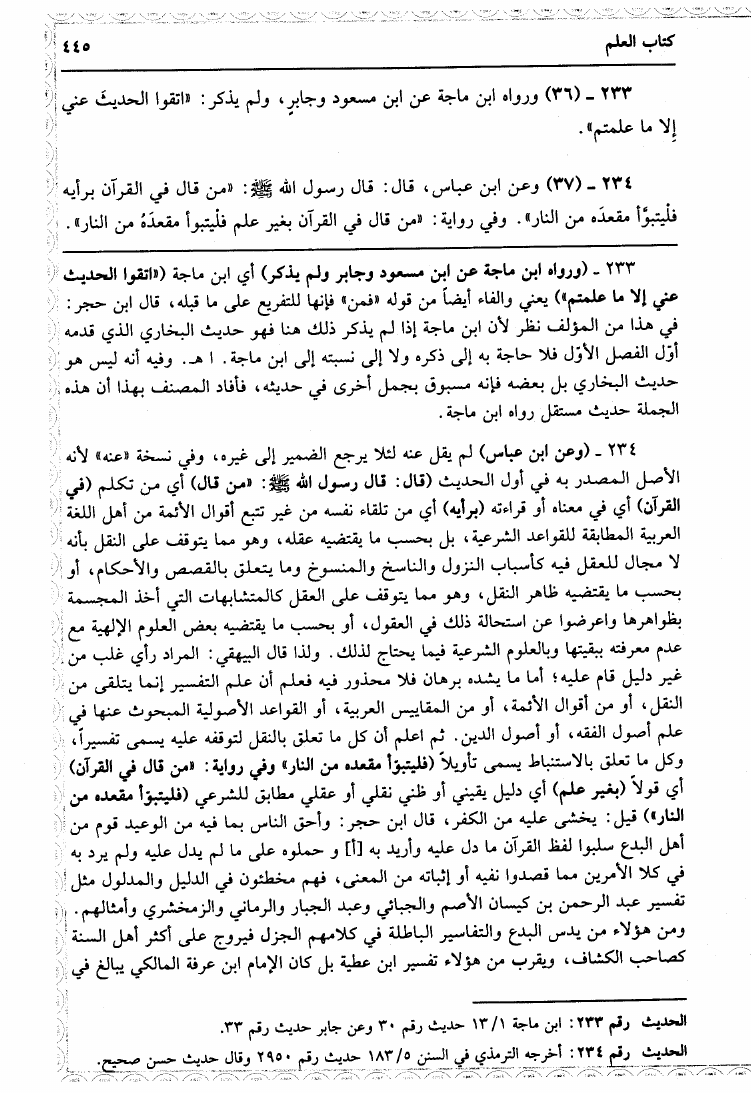 كتاب العلم ٤٤٥
٢٣٣ ـ (٣٦) ورواه ابن ماجة عن ابن مسعود وجابرٍ، ولم يذكر: «اتقوا الحديثَ عني
إِلا ما علمتم».
٢٣٤ ـ (٣٧) وعن ابن عباس، قال: قال رسول الله ﷺ: «من قال في القرآن برأيه
فلْيتبوَّأ مقعدَه من النار». وفي رواية: «من قال في القرآن بغير علم فلْيتبوأ مقعدَهُ من النار».
٢٣٣ ـ (ورواه ابن ماجة عن ابن مسعود وجابر ولم يذكر) أي ابن ماجة («اتقوا الحديث
عني إلا ما علمتم») يعني والفاء أيضاً من قوله «فمن» فإنها للتفريع على ما قبله، قال ابن حجر:
في هذا من المؤلف نظر لأن ابن ماجة إذا لم يذكر ذلك هنا فهو حديث البخاري الذي قدمه
أوّل الفصل الأوّل فلا حاجة به إلى ذكره ولا إلى نسبته إلى ابن ماجة. ا هـ. وفيه أنه ليس هو
حديث البخاري بل بعضه فإنه مسبوق بجمل أخرى في حديثه، فأفاد المصنف بهذا أن هذه
الجملة حديث مستقل رواه ابن ماجة.
٢٣٤ ـ (وعن ابن عباس) لم يقل عنه لئلا يرجع الضمير إلى غيره، وفي نسخة «عنه» لأنه
الأصل المصدر به في أول الحديث (قال: قال رسول الله ﷺ: «من قال) أي من تكلم (في
القرآن) أي في معناه أو قراءته (برأيه) أي من تلقاء نفسه من غير تتبع أقوال الأئمة من أهل اللغة
العربية المطابقة للقواعد الشرعية، بل بحسب ما يقتضيه عقله، وهو مما يتوقف على النقل بأنه
لا مجال للعقل فيه كأسباب النزول والناسخ والمنسوخ وما يتعلق بالقصص والأحكام، أو
بحسب ما يقتضيه ظاهر النقل، وهو مما يتوقف على العقل كالمتشابهات التي أخذ المجسمة
بظواهرها واعرضوا عن استحالة ذلك في العقول، أو بحسب ما يقتضيه بعض العلوم الإلهية مع
عدم معرفته ببقيتها وبالعلوم الشرعية فيما يحتاج لذلك. ولذا قال البيهقي: المراد رأي غلب من
غير دليل قام عليه؛ أما ما يشده برهان فلا محذور فيه فعلم أن علم التفسير إنما يتلقى من
النقل، أو من أقوال الأئمة، أو من المقاييس العربية، أو القواعد الأصولية المبحوث عنها في
علم أصول الفقه، أو أصول الدين. ثم اعلم أن كل ما تعلق بالنقل لتوقفه عليه يسمى تفسيراً،
وكل ما تعلق بالاستنباط يسمى تأويلاً (فليتبوّأ مقعده من النار» وفي رواية: «من قال في القرآن)
أي قولاً (بغير علم) أي دليل يقيني أو ظني نقلي أو عقلي مطابق للشرعي (فليتبوّأ مقعده من
النار») قيل: يخشى عليه من الكفر، قال ابن حجر: وأحق الناس بما فيه من الوعيد قوم من
أهل البدع سلبوا لفظ القرآن ما دل عليه وأريد به [أ] و حملوه على ما لم يدل عليه ولم يرد به
في كلا الأمرين مما قصدوا نفيه أو إثباته من المعنى، فهم مخطئون في الدليل والمدلول مثل
تفسير عبد الرحمن بن كيسان الأصم والجبائي وعبد الجبار والرماني والزمخشري وأمثالهم.
ومن هؤلاء من يدس البدع والتفاسير الباطلة في كلامهم الجزل فيروج على أكثر أهل السنة
كصاحب الكشاف، ويقرب من هؤلاء تفسير ابن عطية بل كان الإمام ابن عرفة المالكي يبالغ في
الحديث رقم ٢٣٣: ابن ماجة ١٣/١ حديث رقم ٣٠ وعن جابر حديث رقم ٣٣.
الحديث رقم ٢٣٤: أخرجه الترمذي في السنن ١٨٣/٥ حديث رقم ٢٩٥٠ وقال حديث حسن صحيح.